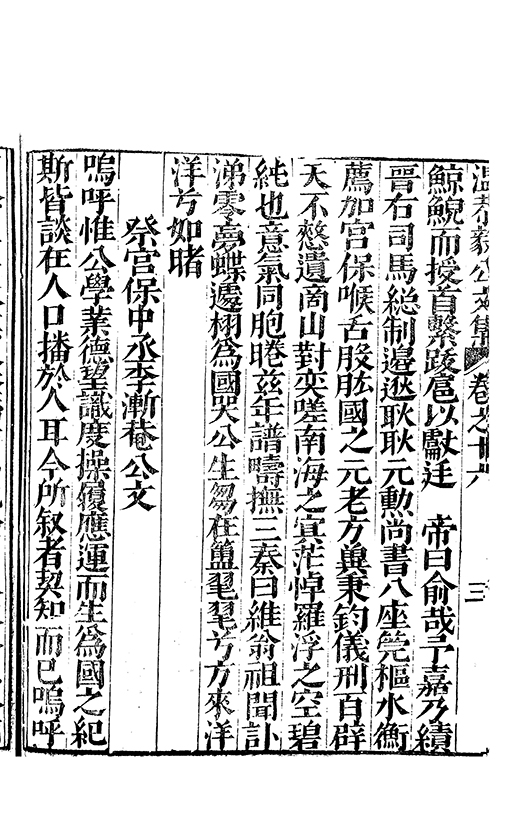 溫恭毅公文集 卷之十六 三
鯨鯢而授首繫踆㕑以獻廷 帝曰俞哉予嘉乃績
晉右司馬總制邊遬耿耿元勳尚書八座筦樞水衡
薦加宮保喉舌股肱國之元老方兾秉鈞儀刑百辟
天不憗遺商山對奕嗟南海之㝠茫悼羅浮之空碧
純也意氣同胞睠兹年譜疇撫三秦曰維翁祖聞訃
涕零夢蝶遽栩爲國哭公生芻在簠毣毣兮方來洋
洋兮如睹
祭宮保中丞李漸菴公文
嗚呼惟公學業德望識度操履應運而生爲國之紀
斯皆談在人口播於人耳今所叙者契知而已嗚呼